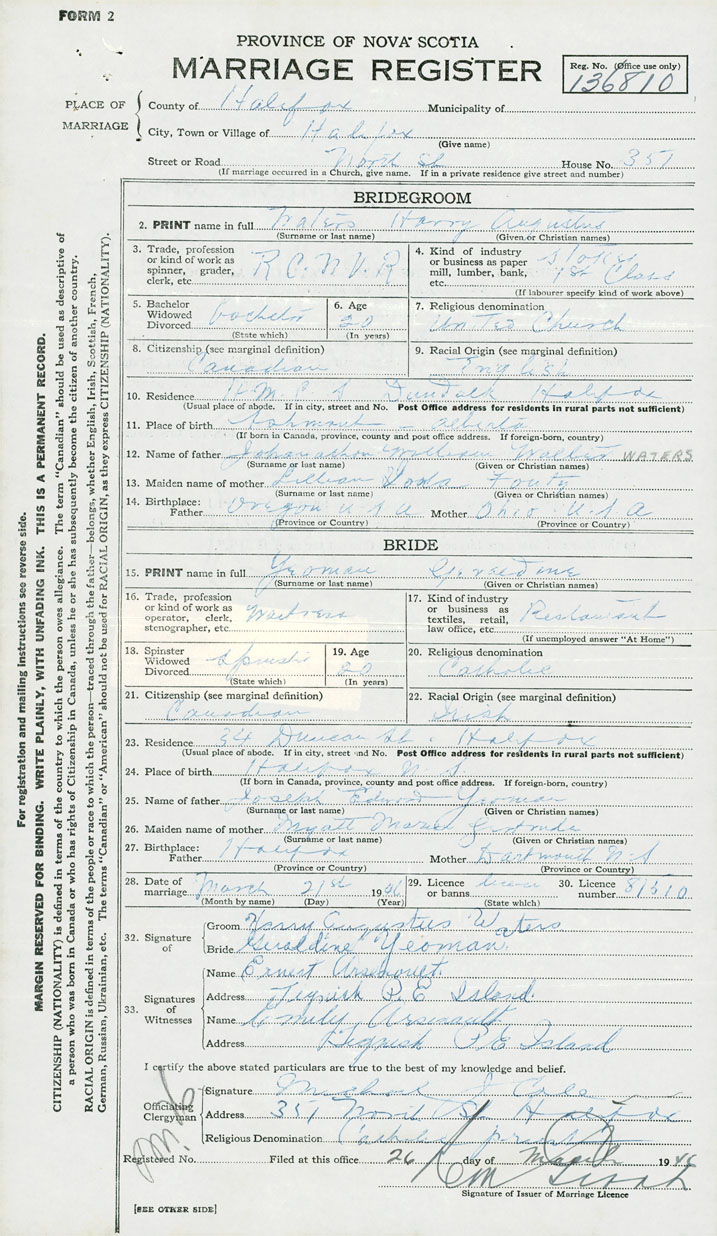 FORM 2
PROVINCE OF NOVA SCOTIA
MARRIAGE REGISTER
Reg. No. (Office use only)
136810
PLACE OF MARRIAGE
County of Halifax Municipality of
City, Town or Village of Halifax
(Give name)
Street or Road North St House No. 351
(If marriage occurred in a Church, give name. If in a private residence give street and number)
BRIDEGROOM
2. PRINT name in full Waters Harry Augustus
(Surname or last name) (Given or Christian names)
3. Trade, profession or kind of work as spinner, grader, clerk, etc. R C N V R
4. Kind of industry or business as paper mill, lumber, bank, etc. Stoker 1st Class
(If labourer specify kind of work above)
5. Bachelor Widowed Divorced bachelor
(State which)
6. Age 20
(In years)
7. Religious denomination United Church
8. Citizenship (see marginal definition) Canadian
9. Racial Origin (see marginal definition) English
10. Residence H M C S Dundalk Halifax
(Usual place of abode. If in city, street and No. Post Office address for residents in rural parts not sufficient)
11. Place of birth Alberta
(If born in Canada, province, county and post office address. If foreign-born, country)
12. Name of father William WATERS
(Surname or last name) (Given or Christian names)
13. Maiden name of mother Lillian
(Surname or last name) (Given or Christian names)
14. Birthplace: Father Oregon U S A Mother Ohio U. S A
(Province or Country) (Province or Country)
BRIDE
15. PRINT name in full Yeoman Geraldine
(Surname or last name) (Given or Christian names)
16. Trade, profession or kind of work as operator, clerk, stenographer, etc. Waitress
17. Kind of industry or business as textiles, retail, law office, etc. Restaurant
(If unemployed answer "At Home")
18. Spinster Widowed Divorced spinster
(State which)
19. Age 20
(In years)
20. Religious denomination Catholic
21. Citizenship (see marginal definition) Canadian
22. Racial Origin (see marginal definition) Irish
23. Residence 34 Duncan St. Halifax
(Usual place of abode. If in city, street and No. Post Office address for residents in rural parts not sufficient)
24. Place of birth Halifax N. S
(If born in Canada, province, county and post office address. If foreign-born, country)
25. Name of father Joseph Edward Yeoman
(Surname or last name) (Given or Christian names)
26. Maiden name of mother Myatt Marie Gertrude
(Surname or last name) (Given or Christian names)
27. Birthplace: Father Halifax Mother Dartmouth N S
(Province or Country) (Province or Country)
28. Date of marriage March 21st 1946
(Month by name) (Day) (Year)
29. Licence or banns
(State which)
30. Licence number 81310
32. Signature of
Groom Harry Augustus Waters
Bride Geraldine Yeoman
33. Signatures of Witnesses
Name Ernest Arsenault
Address Tignish P. E Island
Name Emily Arsenault
Address Tignish P. E Island
I certify the above stated particulars are true to the best of my knowledge and belief.
Officiating Clergyman
Signature Michael J
Address 351 North St Halifax
Religious Denomination Catholic priest
Registered No. Filed at this office 26 day of March 1946
Signature of Issuer of Marriage Licence
[SEE OTHER SIDE]
For registration and mailing instructions see reverse side.
MARGIN RESERVED FOR BINDING. WRITE PLAINLY, WITH UNFADING INK. THIS IS A PERMANENT RECORD.
CITIZENSHIP (NATIONALITY) is defined in terms of the country to which the person owes allegiance. The term "Canadian" should be used as descriptive of
a person who was born in Canada or who has rights of Citizenship in Canada, unless he or she has subsequently become the citizen of another country.
RACIAL ORIGIN is defined in terms of the people or race to which the person—traced through the father—belongs, whether English, Irish, Scottish, French,
German, Russian, Ukrainian, etc. The terms "Canadian" or "American" should not be used for RACIAL ORIGIN, as they express CITIZENSHIP (NATIONALITY).